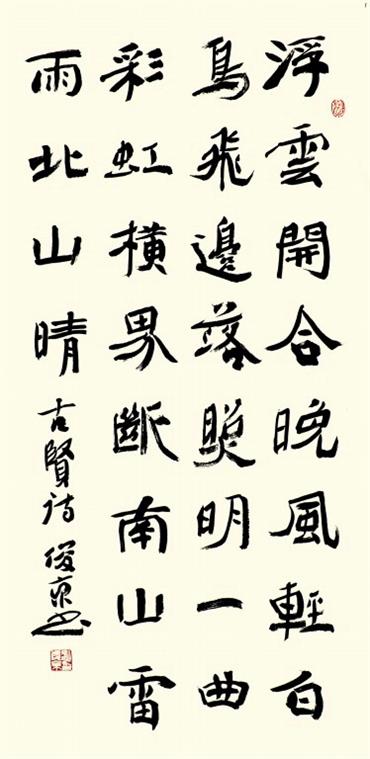 浮雲開合晚風輕白
鳥飛邊落照明一曲
彩虹橫界斷南山雷
雨北山晴 古賢詩 俊